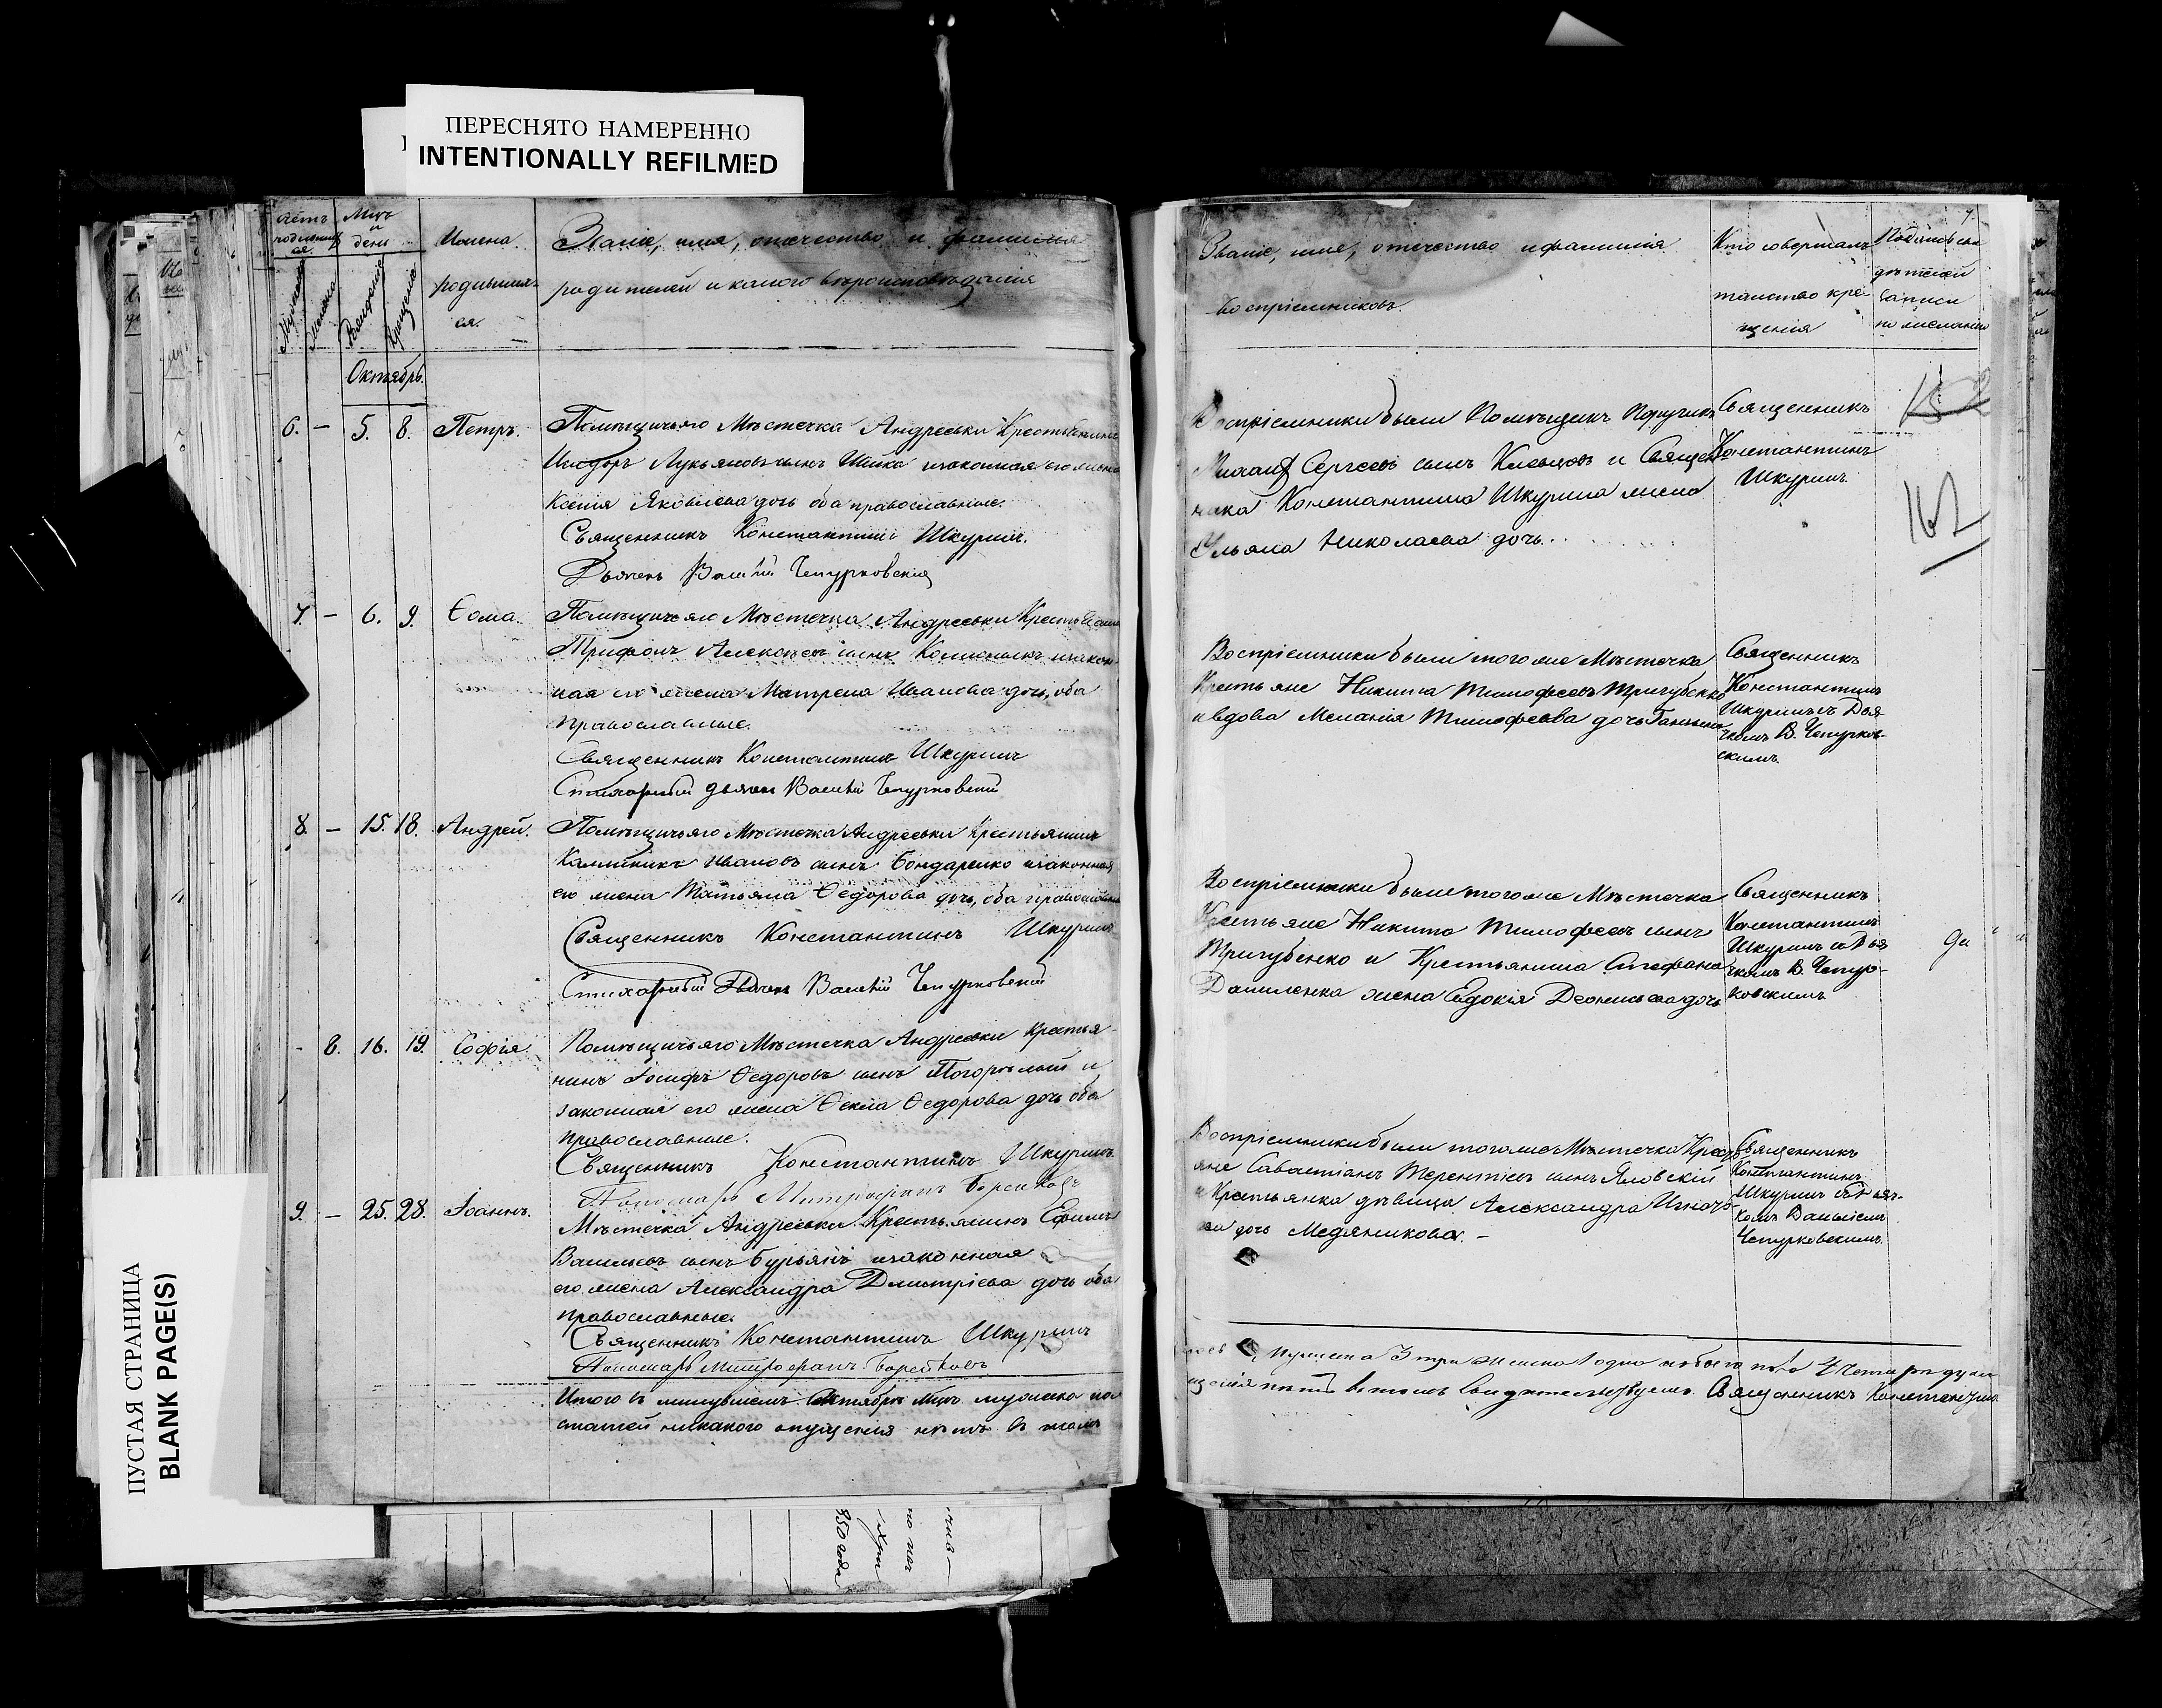 ПЕРЕСНЯТО НАМЕРЕННО
INTENTIONALLY REFILMED
Мцъ
и
дени
Имена
родивших
ся.
Званіе, имя, отечество и фамилія
родителей и какого вѣроисповѣданія
Рожденія
Крещенія
Октябрь.
6. — 5. 8. Петръ.
Помѣщичьяго Мѣстечка Андреевки Крестьянинъ
Исидоръ Лукьяновъ сынъ Шийка изаконная его жена
Ксенія Яковлева дочь оба православные.
Священникъ Константинъ Шкуринъ.
Дьячекъ Васілій Чепурковскій
7. — 6. 9. Ѳома.
Помѣщичьяго Мѣстечка Андреевки Крестьянинъ
Трифонъ Алексѣевъ сынъ изакон
ная его жена Матрена Иванова дочь, оба
православные.
Священникъ Константинъ Шкуринъ
Стихарный дьячек Василій Чепурковскій
8. — 15. 18. Андрей.
Помѣщичьяго Мѣстечка Андреевки Крестьянинъ
Каллиникъ Ивановъ сынъ Бондаренко изаконная
его жена Татьяна Ѳедорова дочь, оба православные
Священникъ Константинъ Шкуринъ
Стихарный Дьячек Василій Чепурковскій
- 8. 16. 19. Софія.
Помѣщичьяго Мѣстечка Андреевки Крестья-
нинъ Іосифъ Ѳедоровъ сынъ Погорѣлый и
законная его жена Ѳекла Ѳедорова дочь оба
православные.
Священникъ Константинъ Шкуринъ
Пономарь Митрофанъ
9. — 25. 28. Іоаннъ.
Мѣстечка Андреевки Крестьянинъ Ефимъ
Васильевъ сынъ Бурьянъ изаконная
его жена Александра Дмитріева дочь оба
православные.
Священникъ Константинъ Шкуринъ
Пономарь Митрофанъ
Итого въ минувшемъ Октябрѣ Мцѣ мужеска по
статей никакого опущенія нѣтъ въ томъ
Званіе, имя, отечество и фамилія
воспріемниковъ.
Кто совершалъ
таинство кре-
щенія
записи
по желанію
Воспріемники были Помѣщикъ Поручикъ
Михаилъ Сергеевъ сынъ и Священ
ника Константина Шкурина жена
Ульяна Николаева дочь.
Священникъ
Константинъ
Шкуринъ.
152
162
Воспріемники были тогоже Мѣстечка
Крестьяне Никита Тимофеевъ Тригубенко
ивдова Меланія Тимофеева дочь
Священникъ
Константинъ
Шкуринъ съ Дья
чкомъ В. Чепурков-
скимъ.
Воспріемники были тогоже Мѣстечка
Крестьяне Никита Тимофеевъ сынъ
Тригубенко и Крестьянина Стефана
Даниленка жена Евдокія Деонисьева дочь
Священникъ
Константинъ
Шкуринъ съ Дья
чкомъ В. Чепур-
ковскимъ
Воспріемники были тогоже Мѣстечка Крестъ
яне Савастіанъ Терентіевъ сынъ Яловскій
и Крестьянка дѣвица Александра
ва дочь Медяникова. —
Священникъ
Константинъ
Шкуринъ съ Дьяч-
комъ Василіемъ
Чепурковскимъ.
мужеска 3 три женска 1 одна обоего пола 4 четыри души
щенія нѣтъ въ томъ свидетельствуемъ. Священникъ Константинъ
ПУСТАЯ СТРАНИЦА
BLANK PAGE(S)